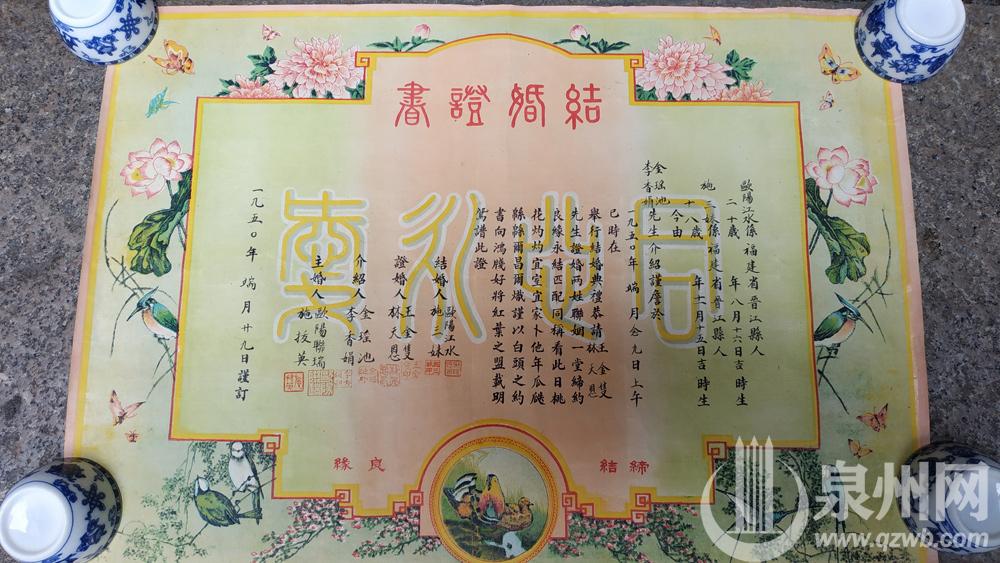 結婚證書
歐陽江水係福建省晉江縣人
二十歲 年八月十六日吉時生
施三妹係福建省晉江縣人
十八歲 年十一月十五日吉時生
今由
金瑤池
李香娟先生介紹謹詹於
一九五〇年 端月廿九日上午
巳時在
舉行結婚典禮恭請王金雙
林天恩
先生證婚兩姓聯姻一堂締約
良緣永結匹配同稱看此日桃
花灼灼宜室宜家卜他年瓜瓞
緜緜爾昌爾熾謹以白頭之約
書向鴻牋好將紅葉之盟載明
鴛譜此證
結婚人 歐陽江水
施三妹
證婚人 王金雙
林天恩
介紹人 金瑤池
李香娟
主婚人 歐陽聯瑞
施拔英
一九五〇年 端月廿九日謹訂
締結
良緣
泉州网
www.qzwb.com